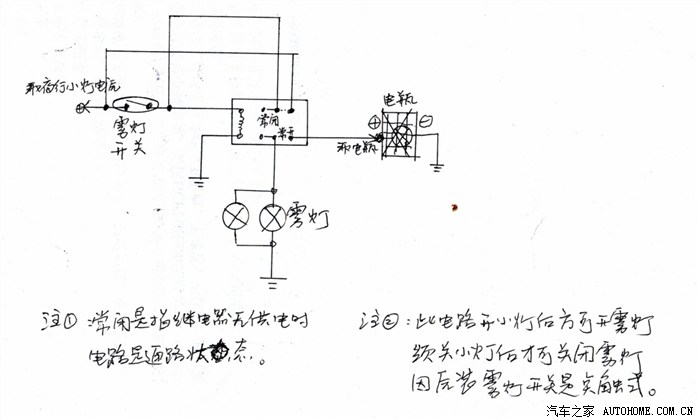 取夜行小灯电瓦
雾灯
开关
常闭
常开
电瓶
⊕
⊖
取电瓶
雾灯
注①:常闭是指继电器无供电时
电路是通路状态。
注②:此电路开小灯后方可开雾灯
须关小灯后才可关闭雾灯
因瓦装雾灯开关是点触式。
汽车之家 AUTOHOME.COM.CN